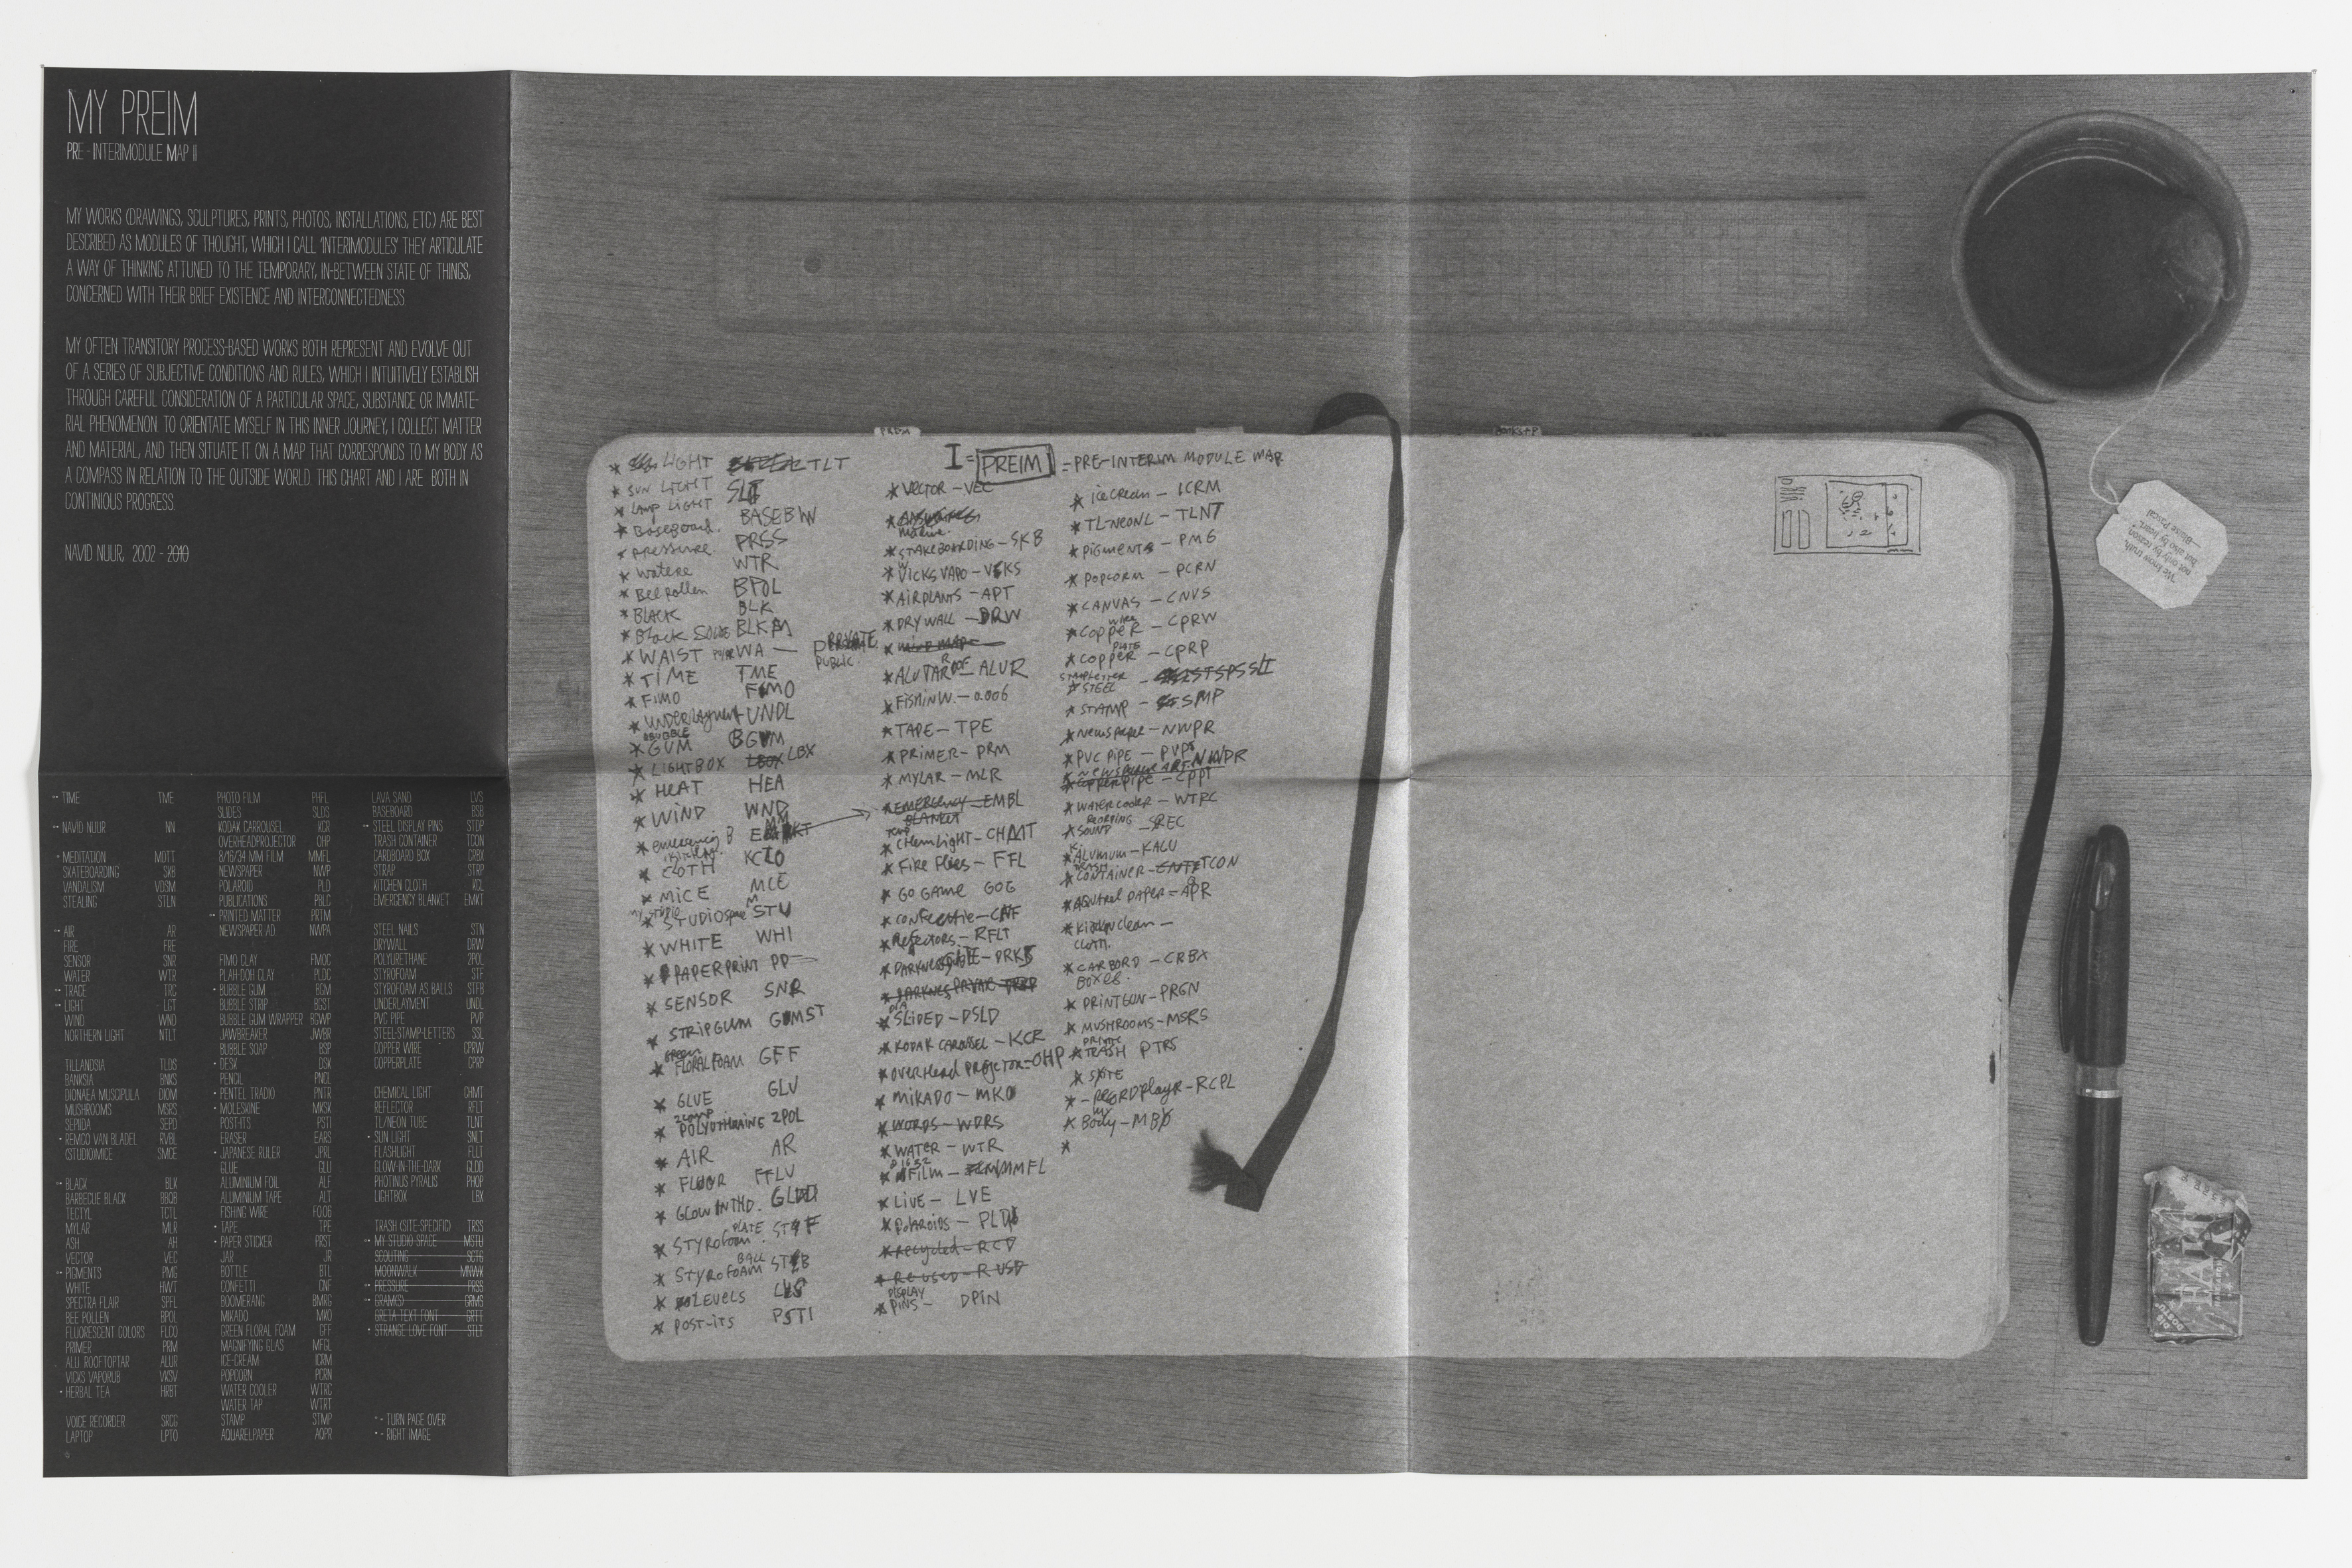 MY PREIM
PRE-INTERIMODULE MAP II
MY WORKS (DRAWINGS, SCULPTURES, PRINTS, PHOTOS, INSTALLATIONS, ETC) ARE BEST
DESCRIBED AS MODULES OF THOUGHT, WHICH I CALL 'INTERIMODULES' THEY ARTICULATE
A WAY OF THINKING ATTUNED TO THE TEMPORARY, IN-BETWEEN STATE OF THINGS,
CONCERNED WITH THEIR BRIEF EXISTENCE AND INTERCONNECTEDNESS
MY OFTEN TRANSITORY PROCESS-BASED WORKS BOTH REPRESENT AND EVOLVE OUT
OF A SERIES OF SUBJECTIVE CONDITIONS AND RULES, WHICH I INTUITIVELY ESTABLISH
THROUGH CAREFUL CONSIDERATION OF A PARTICULAR SPACE, SUBSTANCE OR IMMATE-
RIAL PHENOMENON TO ORIENTATE MYSELF IN THIS INNER JOURNEY, I COLLECT MATTER
AND MATERIAL, AND THEN SITUATE IT ON A MAP THAT CORRESPONDS TO MY BODY AS
A COMPASS IN RELATION TO THE OUTSIDE WORLD. THIS CHART AND I ARE BOTH IN
CONTINIOUS PROGRESS.
NAVID NUUR, 2002 - 2010
TIME TME
NAVID NUUR NN
MEDITATION MDTT
SKATEBOARDING SKB
VANDALISM VDSM
STEALING STLN
AIR AR
FIRE FRE
SENSOR SNR
WATER WTR
TRACE TRC
LIGHT LGT
WIND WND
NORTHERN LIGHT NTLT
TILLANDSIA TLDS
BANKSIA BNKS
DIONAEA MUSCIPULA DIOM
MUSHROOMS MSRS
SEPIDA SEPD
REMCO VAN BLADEL RVBL
(STUDIO)MICE SMCE
BLACK BLK
BARBECUE BLACK BBQB
TECTYL TCTL
MYLAR MLR
ASH AH
VECTOR VEC
PIGMENTS PMG
WHITE HWT
SPECTRA FLAIR SPFL
BEE POLLEN BPOL
FLUORESCENT COLORS FLCO
PRIMER PRM
ALU ROOFTOPTAR ALUR
VICKS VAPORUB VKSV
HERBAL TEA HRBT
VOICE RECORDER SRCG
LAPTOP LPTO
PHOTO FILM PHFL
SLIDES SLDS
KODAK CARROUSEL KCR
OVERHEADPROJECTOR OHP
8/16/34 MM FILM MMFL
NEWSPAPER NWP
POLAROID PLD
PUBLICATIONS PBLC
PRINTED MATTER PRTM
NEWSPAPER AD. NWPA
FIMO CLAY FMOC
PLAH-DOH CLAY PLDC
BUBBLE GUM BGM
BUBBLE STRIP BGST
BUBBLE GUM WRAPPER BGWP
JAWBREAKER JWBR
BUBBLE SOAP BSP
DESK DSK
PENCIL PNCL
PENTEL TRADIO PNTR
MOLESKINE MKSK
POST-ITS PSTI
ERASER EARS
JAPANESE RULER JPRL
GLUE GLU
ALUMINIUM FOIL ALF
ALUMINIUM TAPE ALT
FISHING WIRE F0.06
TAPE TPE
PAPER STICKER PRST
JAR JR
BOTTLE BTL
CONFETTI CNF
BOOMERANG BMRG
MIKADO MKO
GREEN FLORAL FOAM GFF
MAGNIFYING GLAS MFGL
ICE-CREAM ICRM
POPCORN PCRN
WATER COOLER WTRC
WATER TAP WTRT
STAMP STMP
AQUARELPAPER AQPR
LAVA SAND LVS
BASEBOARD BSB
STEEL DISPLAY PINS STDP
TRASH CONTAINER TCON
CARDBOARD BOX CRBX
STRAP STRP
KITCHEN CLOTH KCL
EMERGENCY BLANKET EMKT
STEEL NAILS STN
DRYWALL DRW
POLYURETHANE 2POL
STYROFOAM STF
STYROFOAM AS BALLS STFB
UNDERLAYMENT UNDL
PVC PIPE PVP
STEEL-STAMP-LETTERS SSL
COPPER WIRE CPRW
COPPERPLATE CPRP
CHEMICAL LIGHT CHMT
REFLECTOR RFLT
TL/NEON TUBE TLNT
SUN LIGHT SNLT
FLASHLIGHT FLLT
GLOW-IN-THE-DARK GLDD
PHOTINUS PYRALIS PHOP
LIGHTBOX LBX
TRASH (SITE-SPECIFIC) TRSS
MY STUDIO SPACE MSTU
SCOUTING SCTG
MOONWALK MNWK
PRESSURE PRSS
GRAM(S) GRMS
GRETA TEXT FONT GRTT
STRANGE LOVE FONT STLT
- TURN PAGE OVER
- RIGHT IMAGE
PREIM
I = PREIM = PRE-INTERIM MODULE MAP
* LIGHT TLT
* SUN LIGHT SLT
* LAMP LIGHT
* Baseboard. BASEBW
* pressure. PRSS
* watere WTR
* Bee pollen BPOL
* BLACK BLK
* Black BLKM
* WAIST WA — PRIVATE
PUBLIC
* TIME TME
* FIMO FIMO
* UNDERlayment UNDL
* BUBBLE GUM BGUM
* LIGHTBOX LBOX LBX
* HEAT HEA
* WIND WND
* emergency B
* KITCHEN CLOTH KCLO
* MICE MCE
* MY STUDIO STUDIOspace STU
* WHITE WHI
* PAPERPRINT PP
* SENSOR SNR
* STRIPGUM GUMST
* GREEN FLORALFOAM GFF
* GLUE GLU
* 2comp POLYUTHERAINE 2POL
* AIR AR
* FLOOR FTLV
* GLOW IN THD. GLWD
* STYROfoam. PLATE STYF
* STYROFOAM BALL STYB
* LEVELS LVS
* POST-ITS PSTI
* VECTOR – VEC
* SKAKEBOARDING – SKB
* VICKS VAPO – VCKS
* AIRPLANTS – APT
* DRY WALL – DRW
* MIND MAP
* ALUTAR ROOF – ALUR
* FISHINW. – 0.006
* TAPE – TPE
* PRIMER – PRM
* MYLAR – MLR
* EMERGENCY – EMBL
BLANKET
* CHemLight – CHMT
* Fire Flies – FFL
* GO GAME GOG
* confeetie – CNF
* Refectors. – RFLT
* DARKNES
* DARKNES PRIVATE
* DIA SLIDED – DSLD
* KODAK CAROUSEL – KCR
* OVERHEAD PROJECTOR = OHP
* MIKADO – MKO
* WORDS – WDRS
* WATER – WTR
* Film – MMFL
* LIVE – LVE
* Polaroids – PLD
* recycled – RCD
* RE USED – R USD
* DISPLAY PINS – DPIN
* ice cream – ICRM
* TL-NEONL – TLNT
* PIGMENTS – PMG
* POPCORM – PCRN
* CANVAS – CNVS
* COPPER WIRE – CPRW
* COPPER PLATE – CPRP
* STAMPLETTER STEEL
* STAMP – SMP
* Newspaper – NWPR
* PVC PIPE – PVP
* COPPER PIPE – CPPI
* WATER COOLER – WTRC
* SOUND REORDING – SREC
* ALUMUM – KALU
* TRASH CONTAINER – TCON
* AQUArel PAPER = APR
* Kicken clean –
CLOTH.
* CARBORD – CRBX
BOXES.
* PRINTGUN – PRGN
* MUSHROOMS – MSRS
* PRIVATE TRASH PTRS
* SITE
* – RECORDplayr – RCPL
* MY Body – MBY
*
"We know truth,
not only by reason,
but also by heart."
—Blaise Pascal